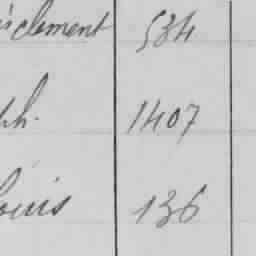 clement 534
ph. 1407
ouis 136